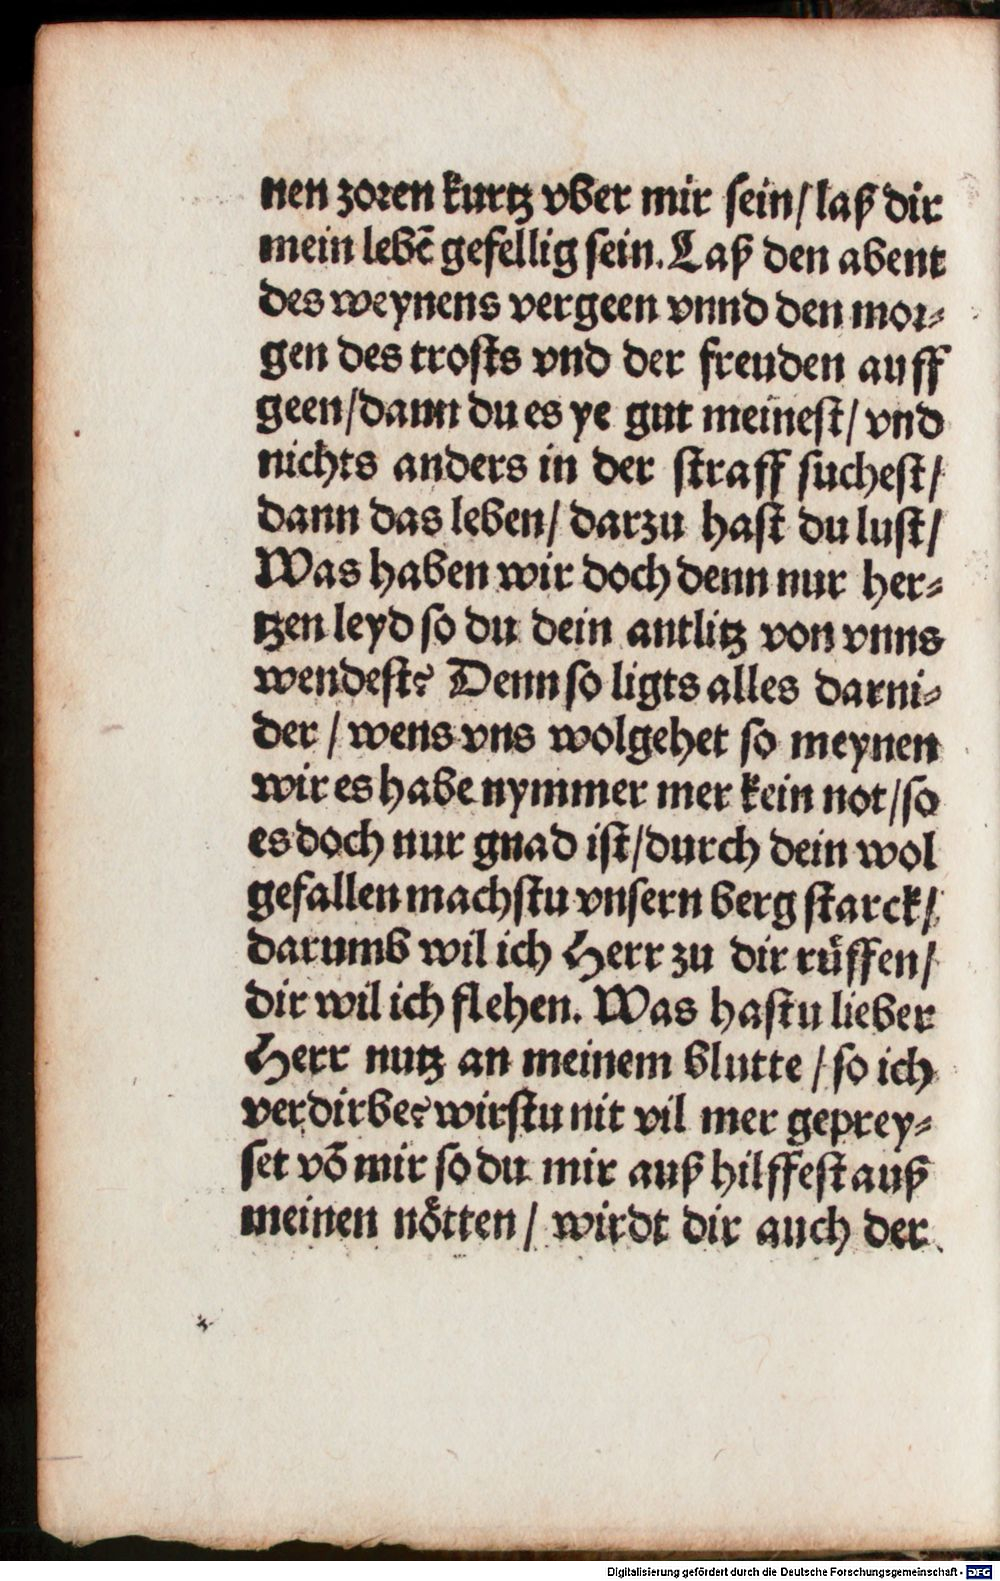 nen zoren kurtz vber mir sein/ laß dir
mein lebẽ gefellig sein. Laß den abent
des weynens vergeen vnnd den mor⸗
gen des trosts vnd der freuden auff
geen/ dann du es ye gut meinest/ vnd
nichts anders in der straff suchest/
dann das leben/ darzu hast du lust/
Was haben wir doch denn nur her⸗
tzen leyd so du dein antlitz von vnns
wendest? Denn so ligts alles darni⸗
der / wens vns wolgehet so meynen
wir es habe nymmer mer kein not/ so
es doch nur gnad ist/ durch dein wol
gefallen machstu vnsern berg starck/
darumb wil ich Herr zu dir rüffen/
dir wil ich flehen. Was hastu lieber
Herr nutz an meinem blutte / so ich
verdirbe? wirstu nit vil mer geprey⸗
set võ mir so du mir auß hilffest auß
meinen nötten / wirdt dir auch der
Digitalisierung gefördert durch die Deutsche Forschungsgemeinschaft - DFG